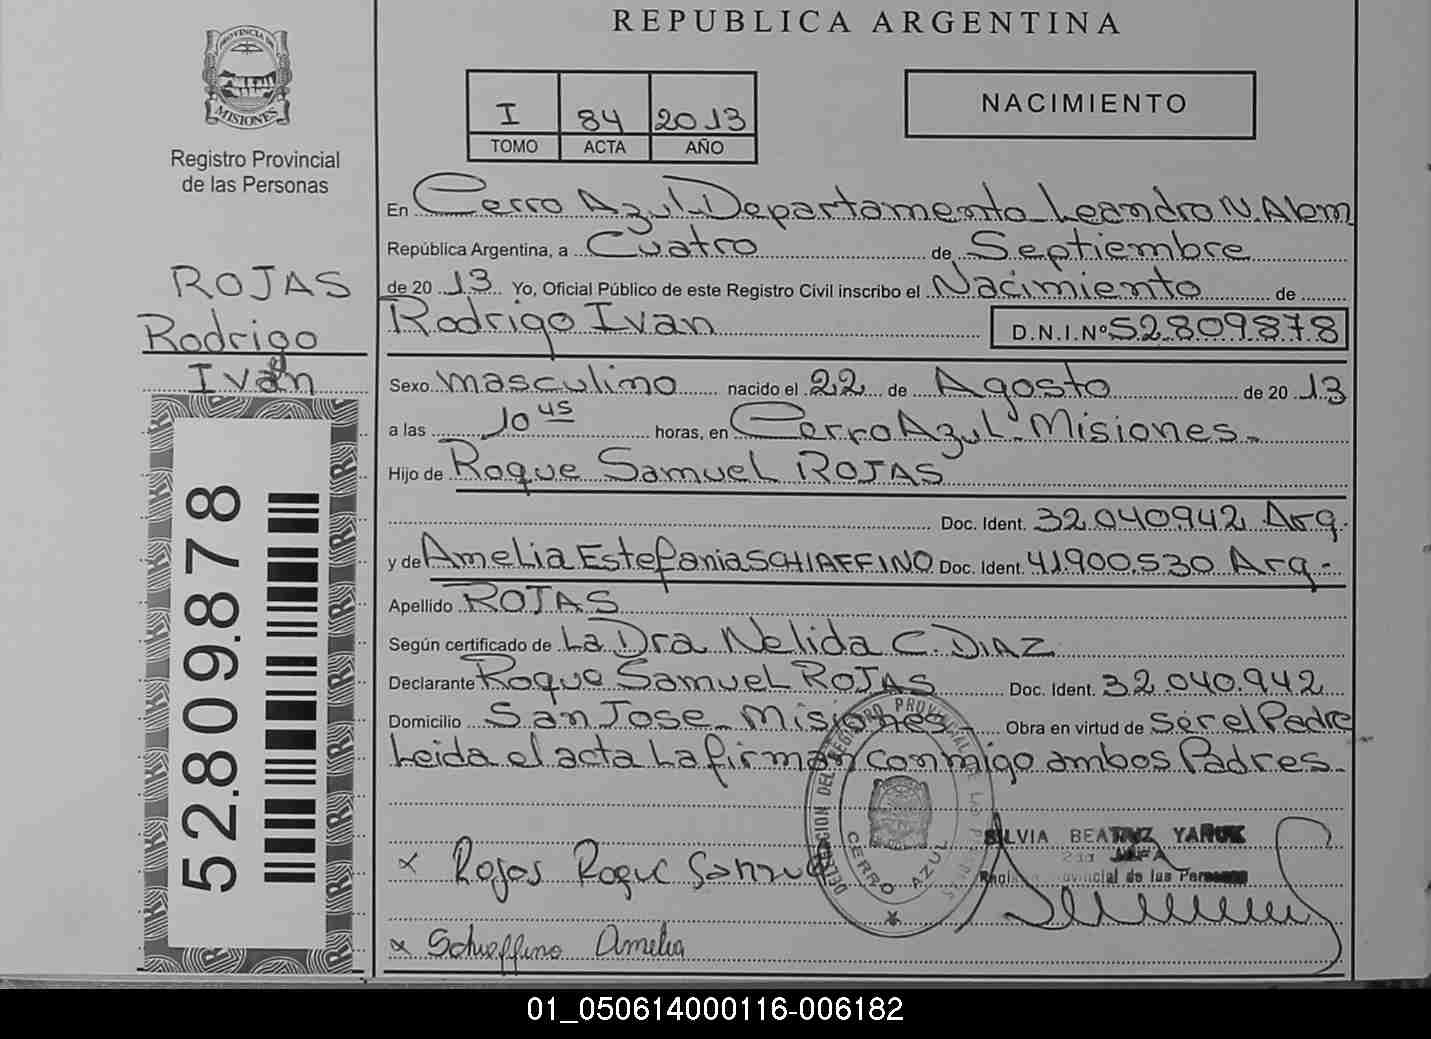 REPUBLICA ARGENTINA
PROVINCIA DE
MISIONES
Registro Provincial
de las Personas
I 84 2013
TOMO ACTA AÑO
NACIMIENTO
En Cerro Azul-Departamento Leandro N. Alem
República Argentina, a Cuatro de Septiembre
de 20 13 Yo, Oficial Público de este Registro Civil inscribo el Nacimiento de
Rodrigo Ivan D.N.I.Nº 52.809.878
ROJAS
Rodrigo
Iván
Sexo masculino nacido el 22 de Agosto de 20 13
a las 10 45 horas, en Cerro Azul-Misiones-
Hijo de Roque Samuel ROJAS
Doc. Ident. 32.040.942 Arg.
y de Amelia Estefania SCHIAFFINO Doc. Ident. 41.900.530 Arg.-
Apellido ROJAS
Según certificado de La Dra Nelida C. DIAZ
Declarante Roque Samuel ROJAS Doc. Ident. 32.040.942
Domicilio San Jose-Misiones Obra en virtud de ser el Padre
Leida el acta La firman conmigo ambos Padres.-
52.809.878
x Rojas Roque Samuel
DELEGACION DEL REGISTRO PROVINCIAL DE LAS PERSONAS
CERRO AZUL
SILVIA BEATRIZ
2da JEFA
Registro Provincial de las Personas
x Schiaffino Amelia
01_050614000116-006182